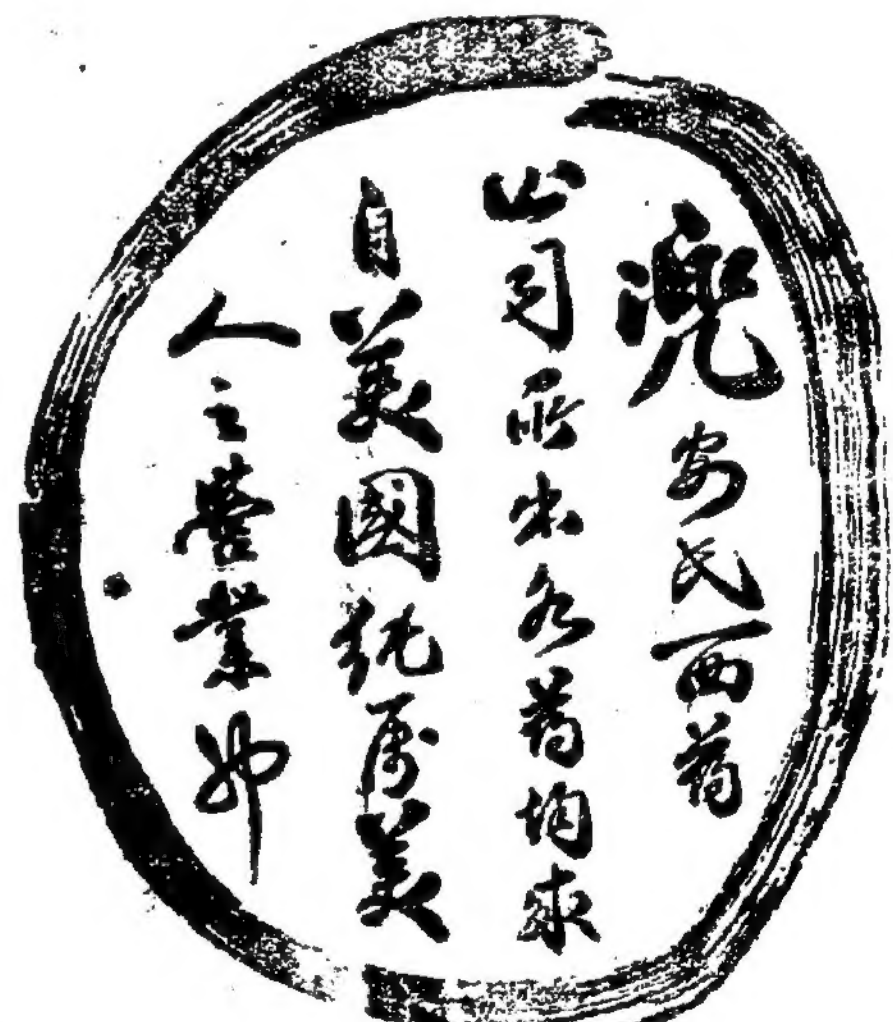 兜安氏西药
公司所出各药均來
自美國純属美
人之營業